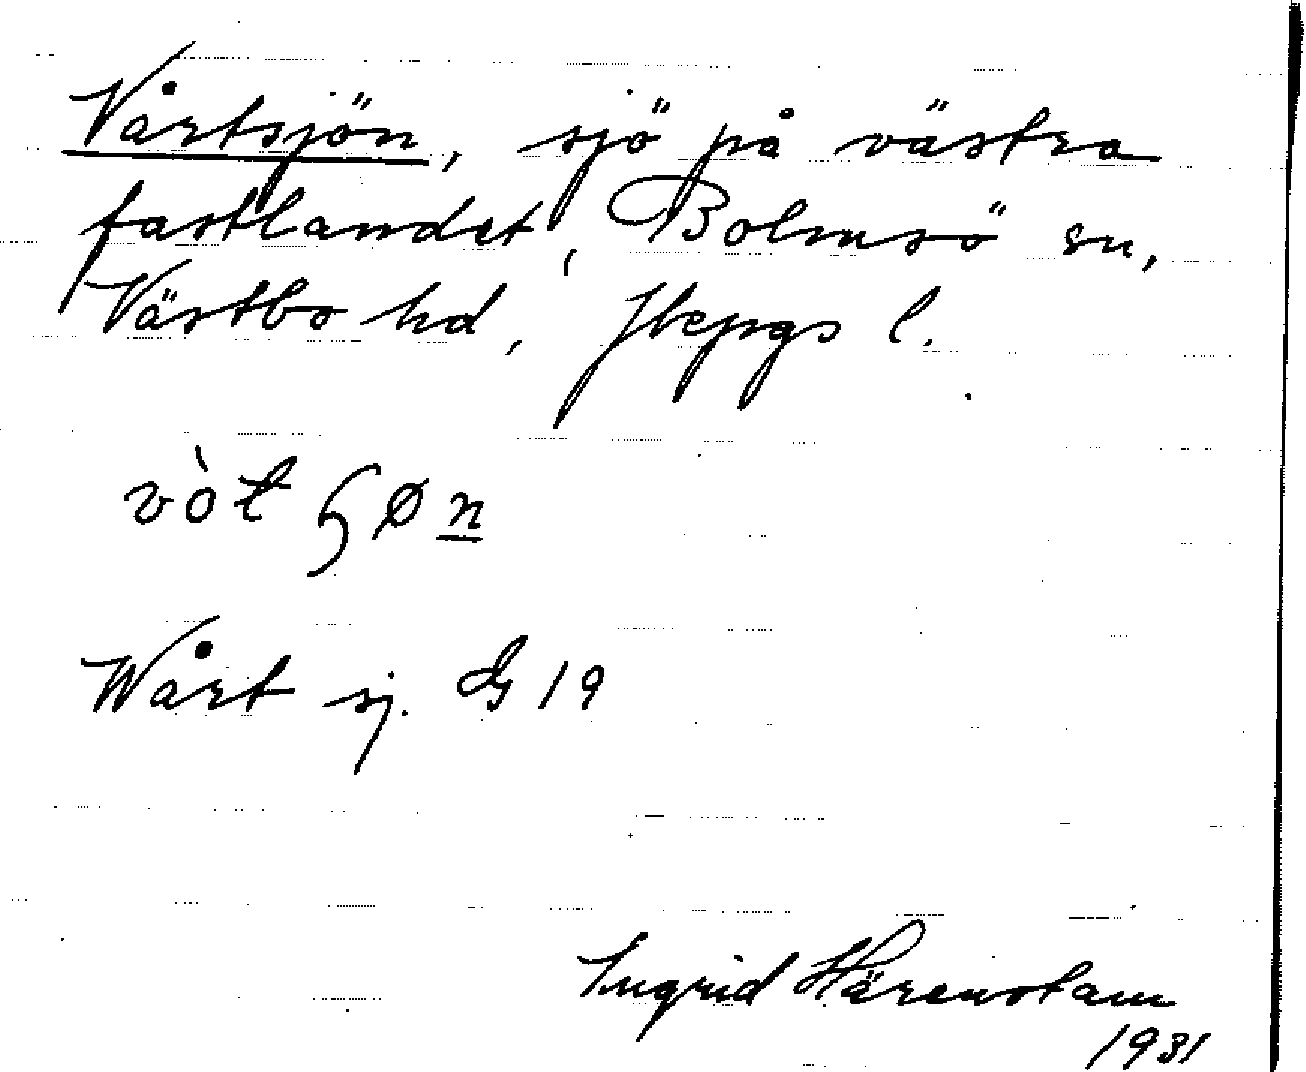 Vårtsjön, sjö på västra
fastlandet, Bolmsö sn,
Västbo hd, Jkpgs l.
vòt ɧøn
Wårt sj. G 19
Ingrid Härenstam
1931